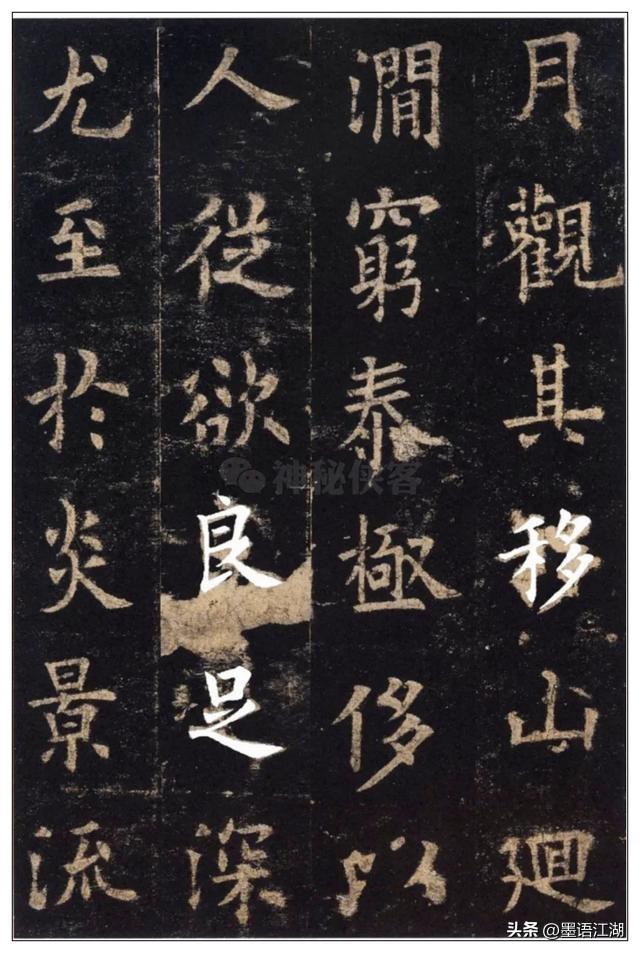 月觀其移山廻
澗窮泰極侈以
人從欲良足深
尤至於炎景流
神秘侠客
头条 @墨语江湖